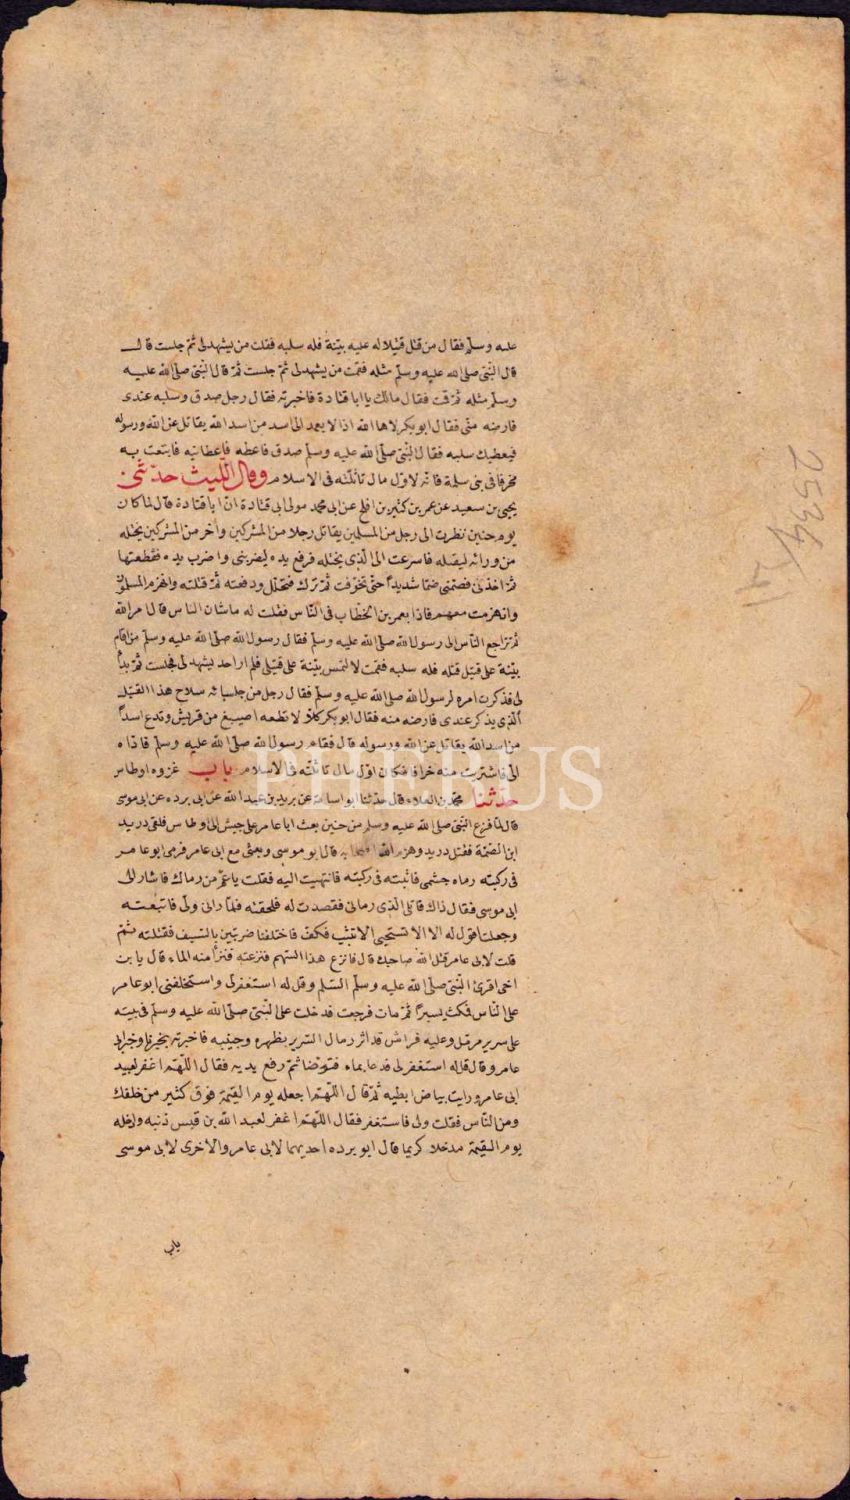 عليه وسلم فقال من قتل قتيلا له عليه بينة فله سلبه فقلت من يشهد لى ثم جلست قال
قال النبى صلى الله عليه وسلم مثله فقمت من يشهد لى ثم جلست ثم قال النبى صلى الله عليه
وسلم مثله ثم قمت فقال مالك يا ابا قتادة فاخبرته فقال رجل صدق وسلبه عندى
فارضه منى فقال ابو بكر لاها الله اذا لا يعمد الى اسد من اسد الله يقاتل عن الله ورسوله
فيعطيك سلبه فقال النبى صلى الله عليه وسلم صدق فاعطه فاعطانيه فابتعت به
مخرفا فى بنى سلمة فانه لاول مال تاثلته فى الاسلام وقال الليث حدثنى
يحيى بن سعيد عن عمر بن كثير بن افلح عن ابى محمد مولى ابى قتادة ان ابا قتادة قال لما كان
يوم حنين نظرت الى رجل من المسلمين يقاتل رجلا من المشركين وآخر من المشركين يختله
من ورائه ليقتله فاسرعت الى الذى يختله فرفع يده ليضربنى واضرب يده فقطعتها
ثم اخذنى فضمنى ضما شديدا حتى تخوفت ثم ترك فتحلل ودفعته ثم قتلته وانهزم المسلمون
وانهزمت معهم فاذا بعمر بن الخطاب فى الناس فقلت له ما شان الناس قال امر الله
ثم تراجع الناس الى رسول الله صلى الله عليه وسلم فقال رسول الله صلى الله عليه وسلم من اقام
بينة على قتيل قتله فله سلبه فقمت لالتمس بينة على قتيلى فلم ار احد يشهد لى فجلست ثم بدا
لى فذكرت امره لرسول الله صلى الله عليه وسلم فقال رجل من جلسائه سلاح هذا القتيل
الذى يذكر عندى فارضه منه فقال ابو بكر كلا لا تطعه اصيبغ من قريش وتدع اسدا
من اسد الله يقاتل عن الله ورسوله قال فقام رسول الله صلى الله عليه وسلم فاداه
الى فاشتريت منه خرافا فكان اول مال تاثلته فى الاسلام باب غزوه اوطاس
حدثنا محمد بن العلاء قال حدثنا ابو اسامة عن بريد بن عبد الله عن ابى برده عن ابى موسى
قال لما فرغ النبى صلى الله عليه وسلم من حنين بعث ابا عامر على جيش الى اوطاس فلقى دريد
ابن الصمة فقتل دريد وهزم الله اصحابه قال ابو موسى وبعثنى مع ابى عامر فرمى ابو عامر
فى ركبته رماه جشمى فاثبته فى ركبته فانتهيت اليه فقلت يا عم من رماك فاشار الى
ابى موسى فقال ذاك قاتلى الذى رمانى فقصدت له فلحقته فلما رانى ولى فاتبعته
وجعلت اقول له الا تستحيى الا تثبت فكف فاختلفنا ضربتين بالسيف فقتلته ثم
قلت لابى عامر قتل الله صاحبك قال فانزع هذا السهم فنزعته فنزا منه الماء قال يا بن
اخى اقرئ النبى صلى الله عليه وسلم السلم وقل له استغفر لى واستخلفنى ابو عامر
على الناس فمكث يسيرا ثم مات فرجعت فدخلت على النبى صلى الله عليه وسلم فى بيته
على سرير مرمل وعليه فراش قد اثر رمال السرير بظهره وجنبيه فاخبرته بخبرنا وخبر ابى
عامر وقال قل له استغفر لى فدعا بماء فتوضا ثم رفع يديه فقال اللهم اغفر لعبيد
ابى عامر ورايت بياض ابطيه ثم قال اللهم اجعله يوم القيمة فوق كثير من خلقك
ومن الناس فقلت ولى فاستغفر فقال اللهم اغفر لعبد الله بن قيس ذنبه وادخله
يوم القيمة مدخلا كريما قال ابو برده احديهما لابى عامر والاخرى لابى موسى
باب
PHEBUS
2534/